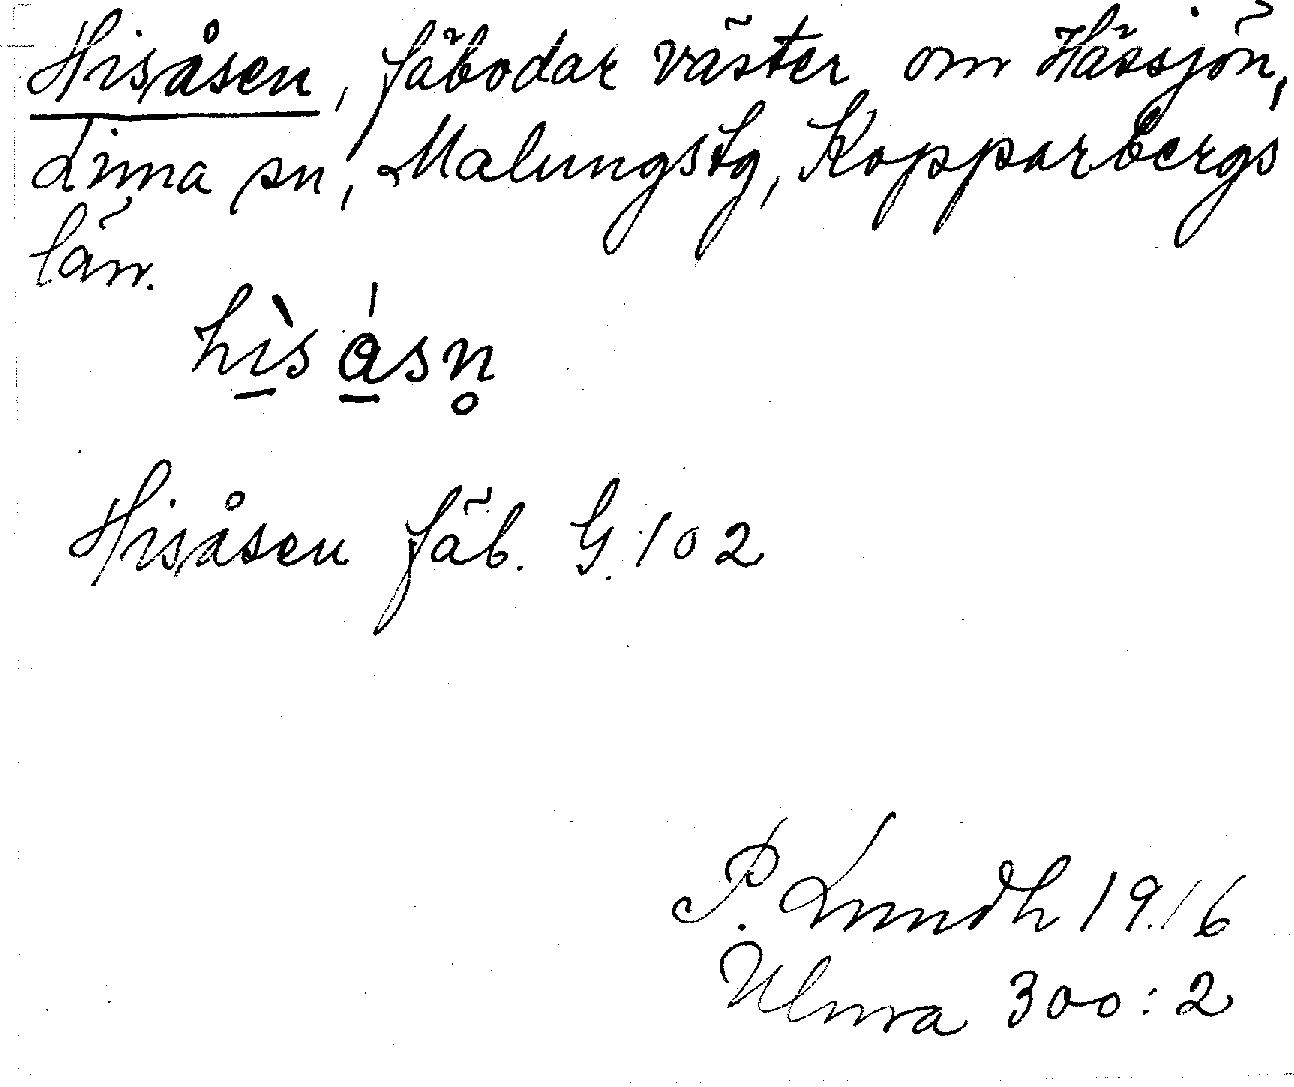 Hisåsen, fäbodar väster om Hässjön,
Lima sn, Malungs tg, Kopparbergs
län.
hìsásn̥
Hisåsen fäb. G. 102
P. Lundh 1916
Ulma 300:2